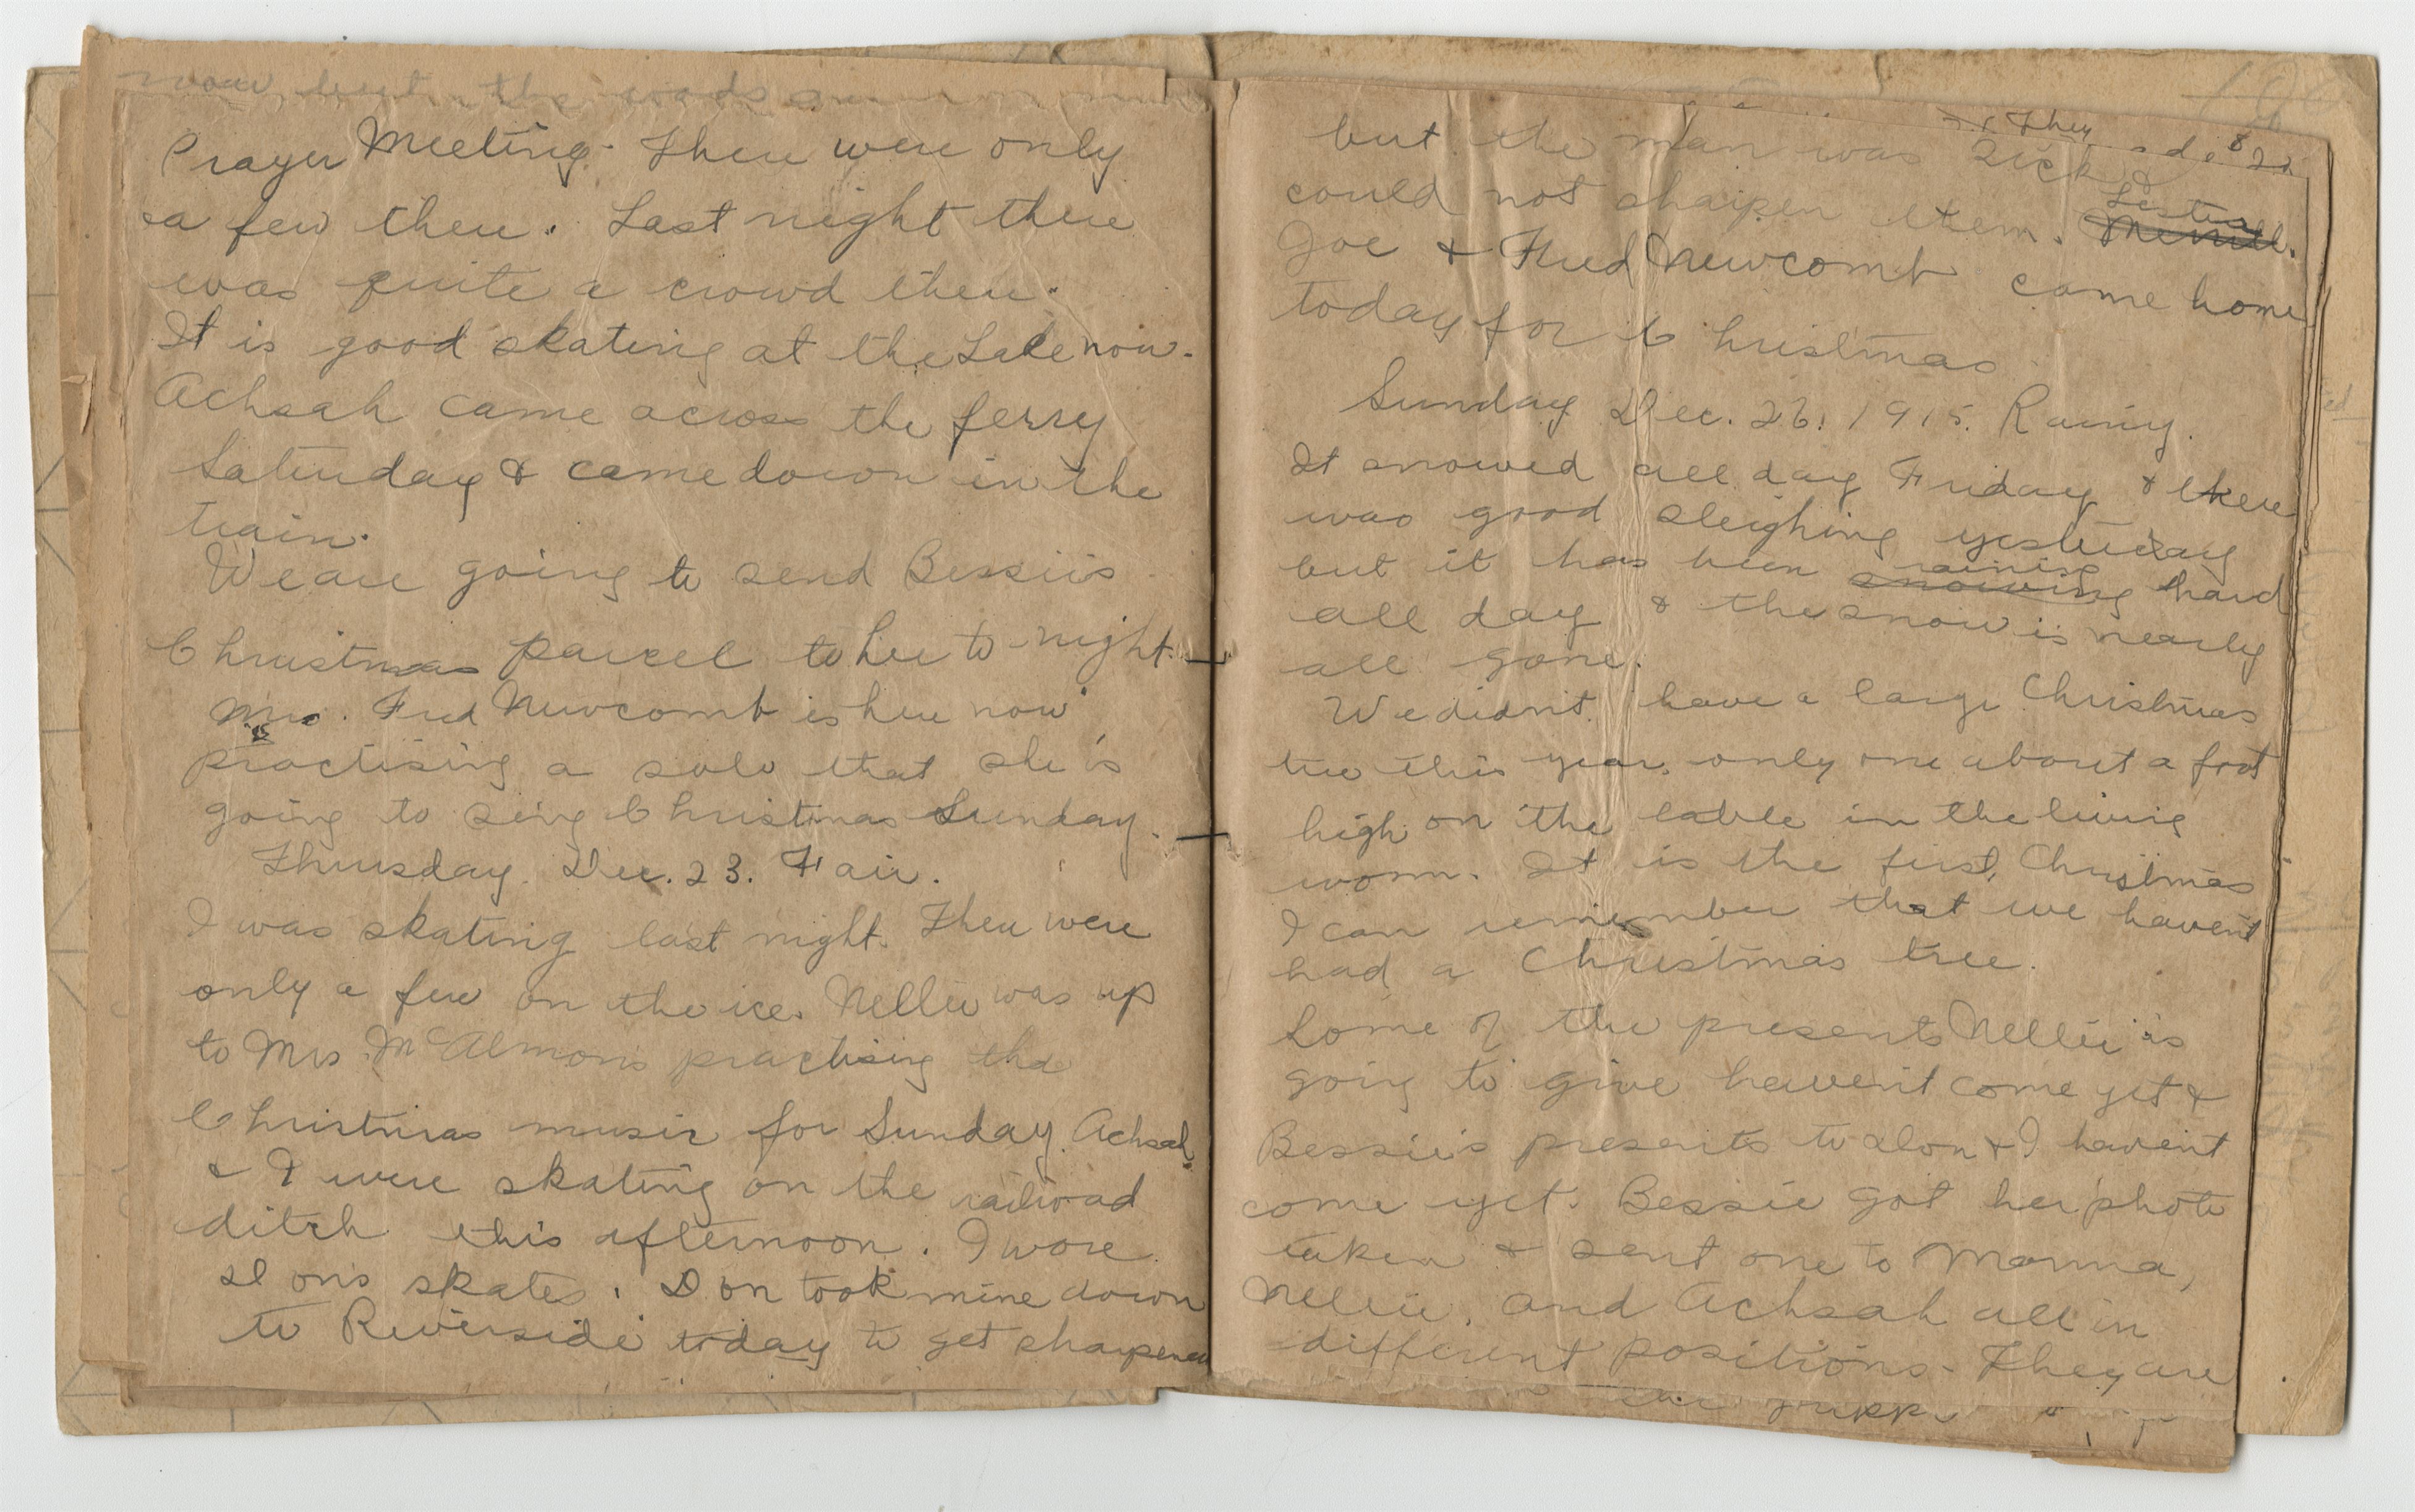 now, but the roads
Prayer Meeting. There were only
a few there. Last night there
was quite a crowd there.
It is good skating at the Lake now.
Achsah came across the ferry
Saturday & came down in the
train.
We are going to send Bessie's
Christmas parcel to her to-night.
Mrs. Fred Newcomb is here now
practising a solo that she is
going to sing Christmas Sunday.
Thursday. Dec. 23. Fair.
I was skating last night. There were
only a few on the ice. Nellie was up
to Mrs. McAlmon's practising the
Christmas music for Sunday. Achsah
& I were skating on the railroad
ditch this afternoon. I wore
Don's skates. Don took mine down
to Riverside today to get sharpened
They
but the man was sick &
could not sharpen them. Lester Merrill.
Joe & Fred Newcomb came home
today for Christmas
Sunday Dec. 26. 1915. Rainy.
It snowed all day Friday & there
was good sleighing yesterday
but it has been snowing raining hard
all day & the snow is nearly
all gone.
We didn't have a large Christmas
tree this year, only one about a foot
high on the table in the living
room. It is the first Christmas
I can remember that we haven't
had a Christmas tree.
Some of the presents Nellie is
going to give haven't come yet &
Bessie's presents to Don & I haven't
come yet. Bessie got her photo
taken & sent one to Mamma,
Nellie, and Achsah all in
different positions. They are
the grippe